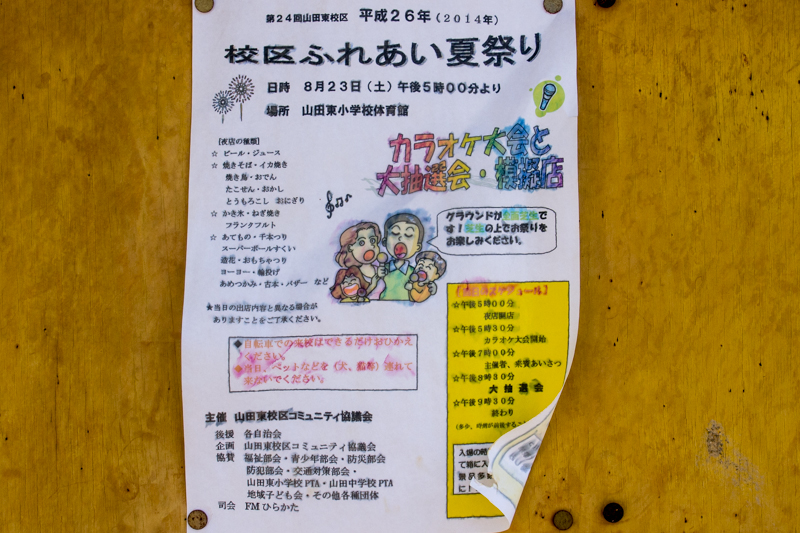 第24回山田東校区 平成26年(2014年)
校区ふれあい夏祭り
日時 8月23日(土)午後5時00分より
場所 山田東小学校体育館
カラオケ大会と
大抽選会・模擬店
[夜店の種類]
☆ ビール・ジュース
☆ 焼きそば・イカ焼き
焼き鳥・おでん
たこせん・おかし
とうもろこし おにぎり
☆ かき氷・ねぎ焼き
フランクフルト
☆ あてもの・千本つり
スーパーボールすくい
造花・おもちゃつり
ヨーヨー・輪投げ
あめつかみ・古本・バザー など
★当日の出店内容と異なる場合が
ありますことをご了承ください。
グラウンドが
す!の上でお祭りを
お楽しみください。
◆自転車での来校はできるだけおひかえ
ください。
◆当日、ペットなどを(犬、猫等)連れて
来ないでください。
☆午後5時00分
夜店開店
☆午後5時30分
カラオケ大会開始
☆午後7時00分
主催者、来賓あいさつ
☆午後8時30分
大抽選会
☆午後9時30分
終わり
主催 山田東校区コミュニティ協議会
後援 各自治会
企画 山田東校区コミュニティ協議会
協賛 福祉部会・青少年部会・防災部会
防犯部会・交通対策部会・
山田東小学校PTA・山田中学校PTA
地域子ども会・その他各種団体
司会 FMひらかた
入場の時
て箱に入
景品多
に!